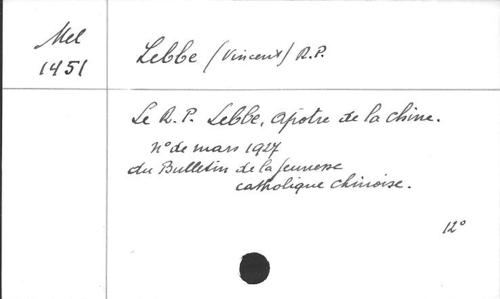 Mel
1451
Lebbe (Vincent) R.P.
Le R.P. Lebbe, apotre de la Chine.
n° de mars 1927
du Bulletin de la Jeunesse
catholique chinoise.
12°